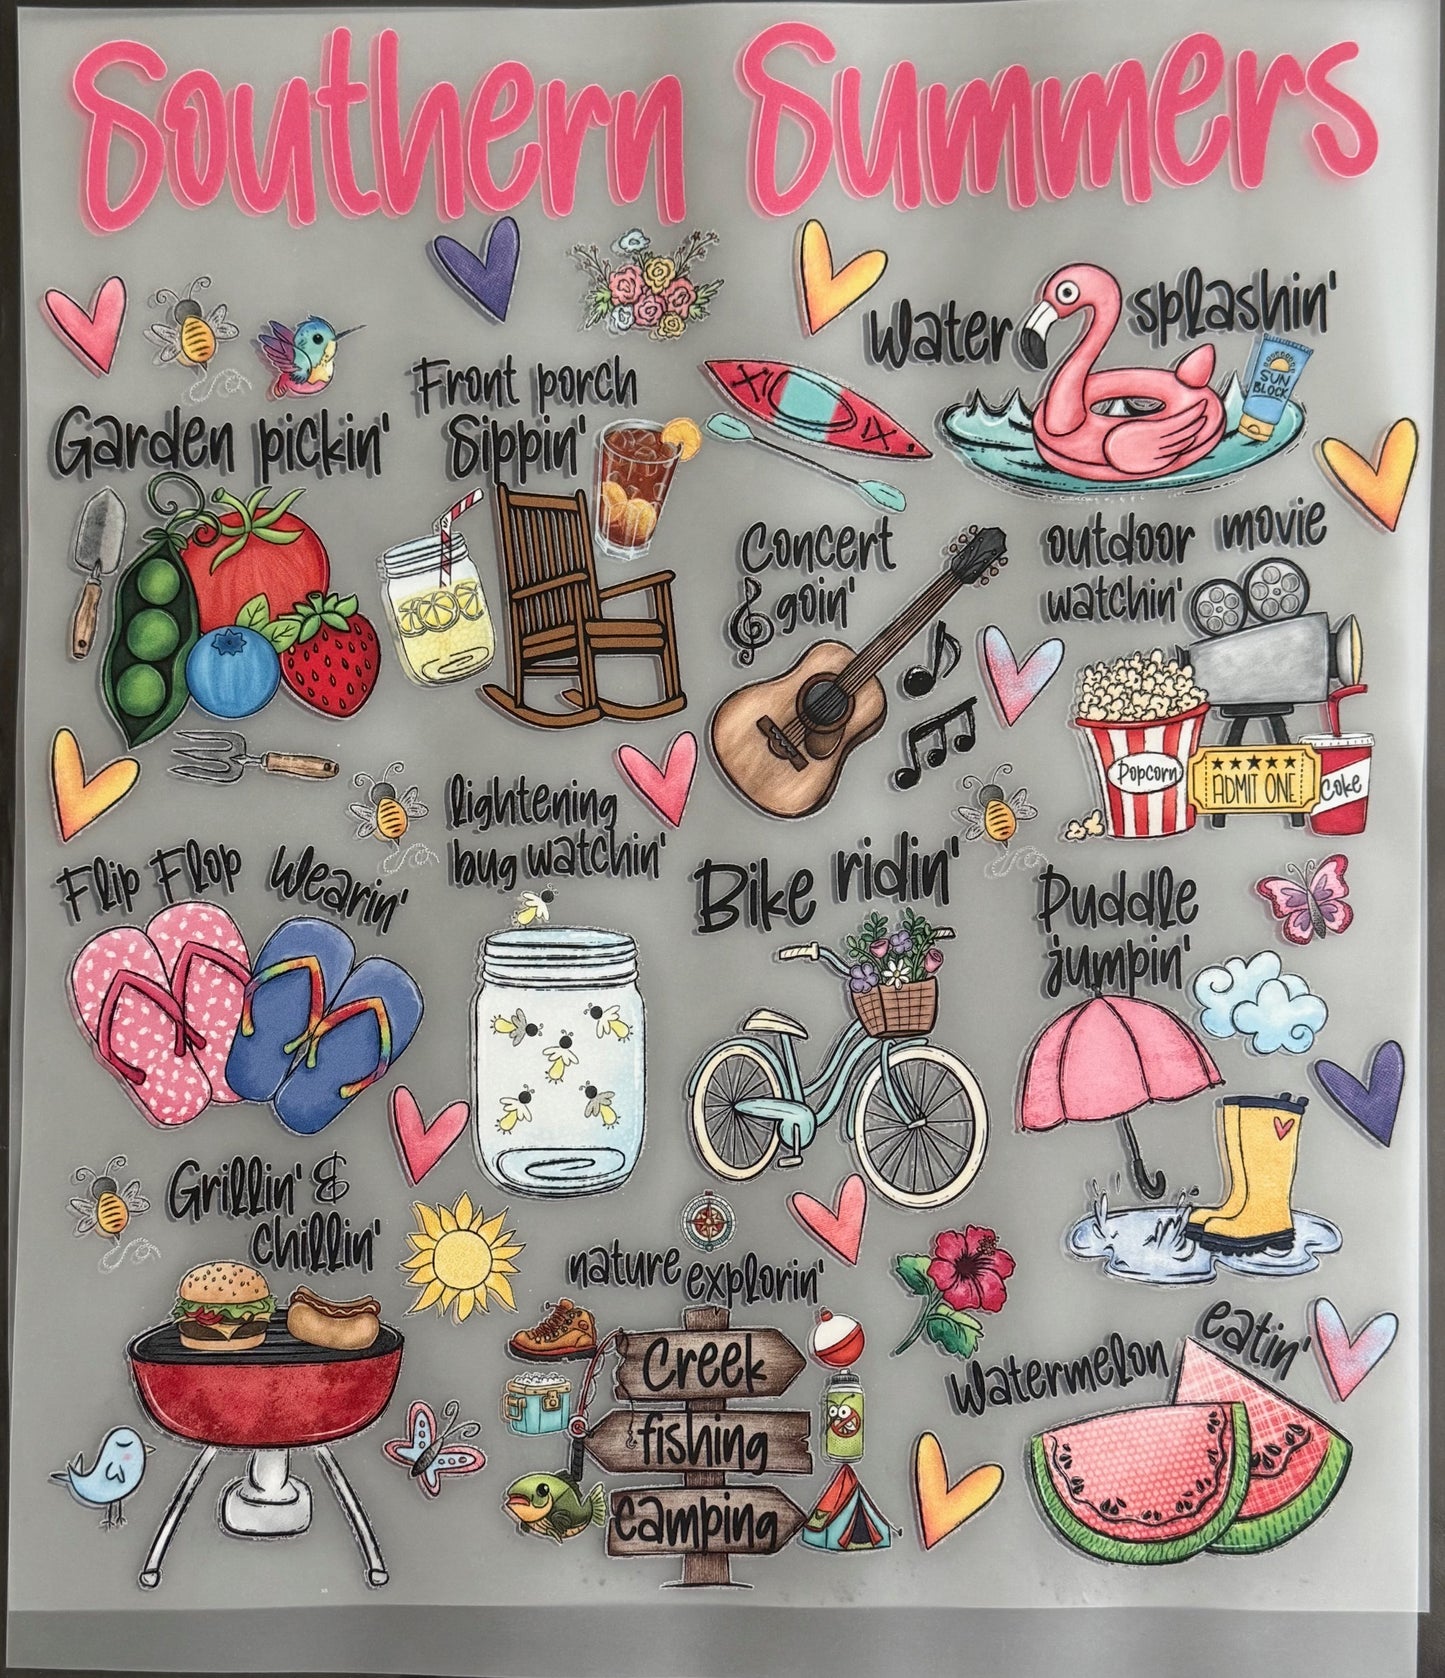 Southern Summers
Water splashin'
SUN
BLOCK
Front porch
Sippin'
Garden pickin'
Concert
goin'
outdoor movie
watchin'
Popcorn
ADMIT ONE
Coke
lightening
bug watchin'
Flip Flop Wearin'
Bike ridin'
Puddle
jumpin'
Grillin' &
chillin'
nature explorin'
Creek
fishing
camping
Watermelon eatin'